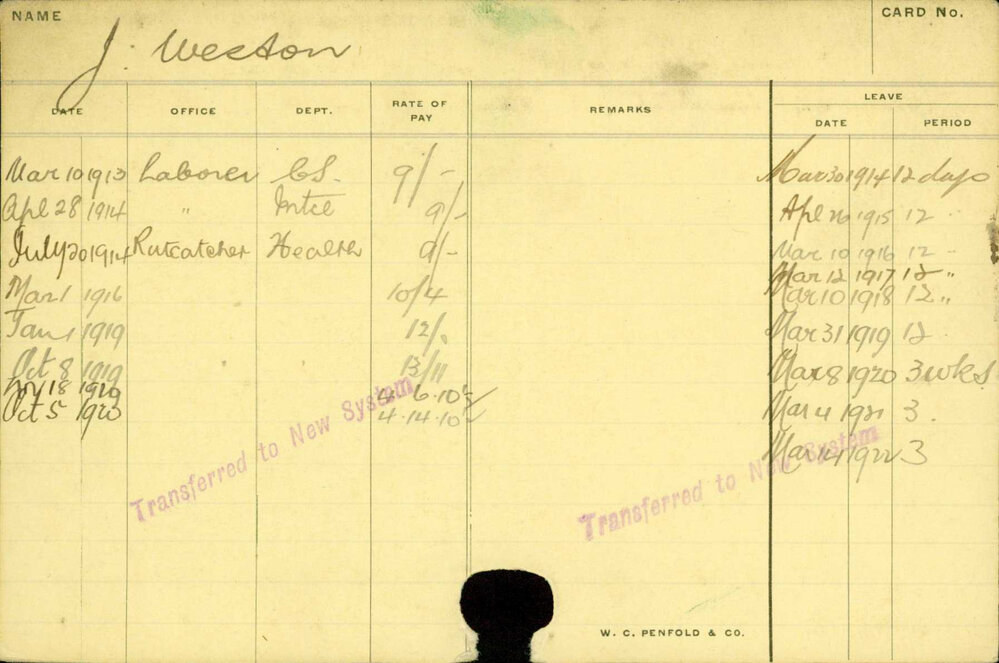 NAME
J. Weston
CARD No.
DATE OFFICE DEPT. RATE OF PAY REMARKS LEAVE
DATE PERIOD
Mar 10 1913 Laborer CS. 9/- Mar 30 1914 12 days
Apl 28 1914 " Mtce 9/- Apl 26 1915 12 "
July 20 1914 Ratcatcher Health 9/- Mar 10 1916 12 "
Mar 12 1917 12 "
Mar 1 1916 10/4 Mar 10 1918 12 "
Jan 1 1919 12/- Mar 31 1919 12
Oct 8 1919 13/11 Mar 8 1920 3 wks
18 1920 4.6.10½
Oct 5 1920 4.14.10½ Mar 4 1921 3.
Mar 14 1922 3
Transferred to New System
Transferred to New System
W. C. PENFOLD & CO.